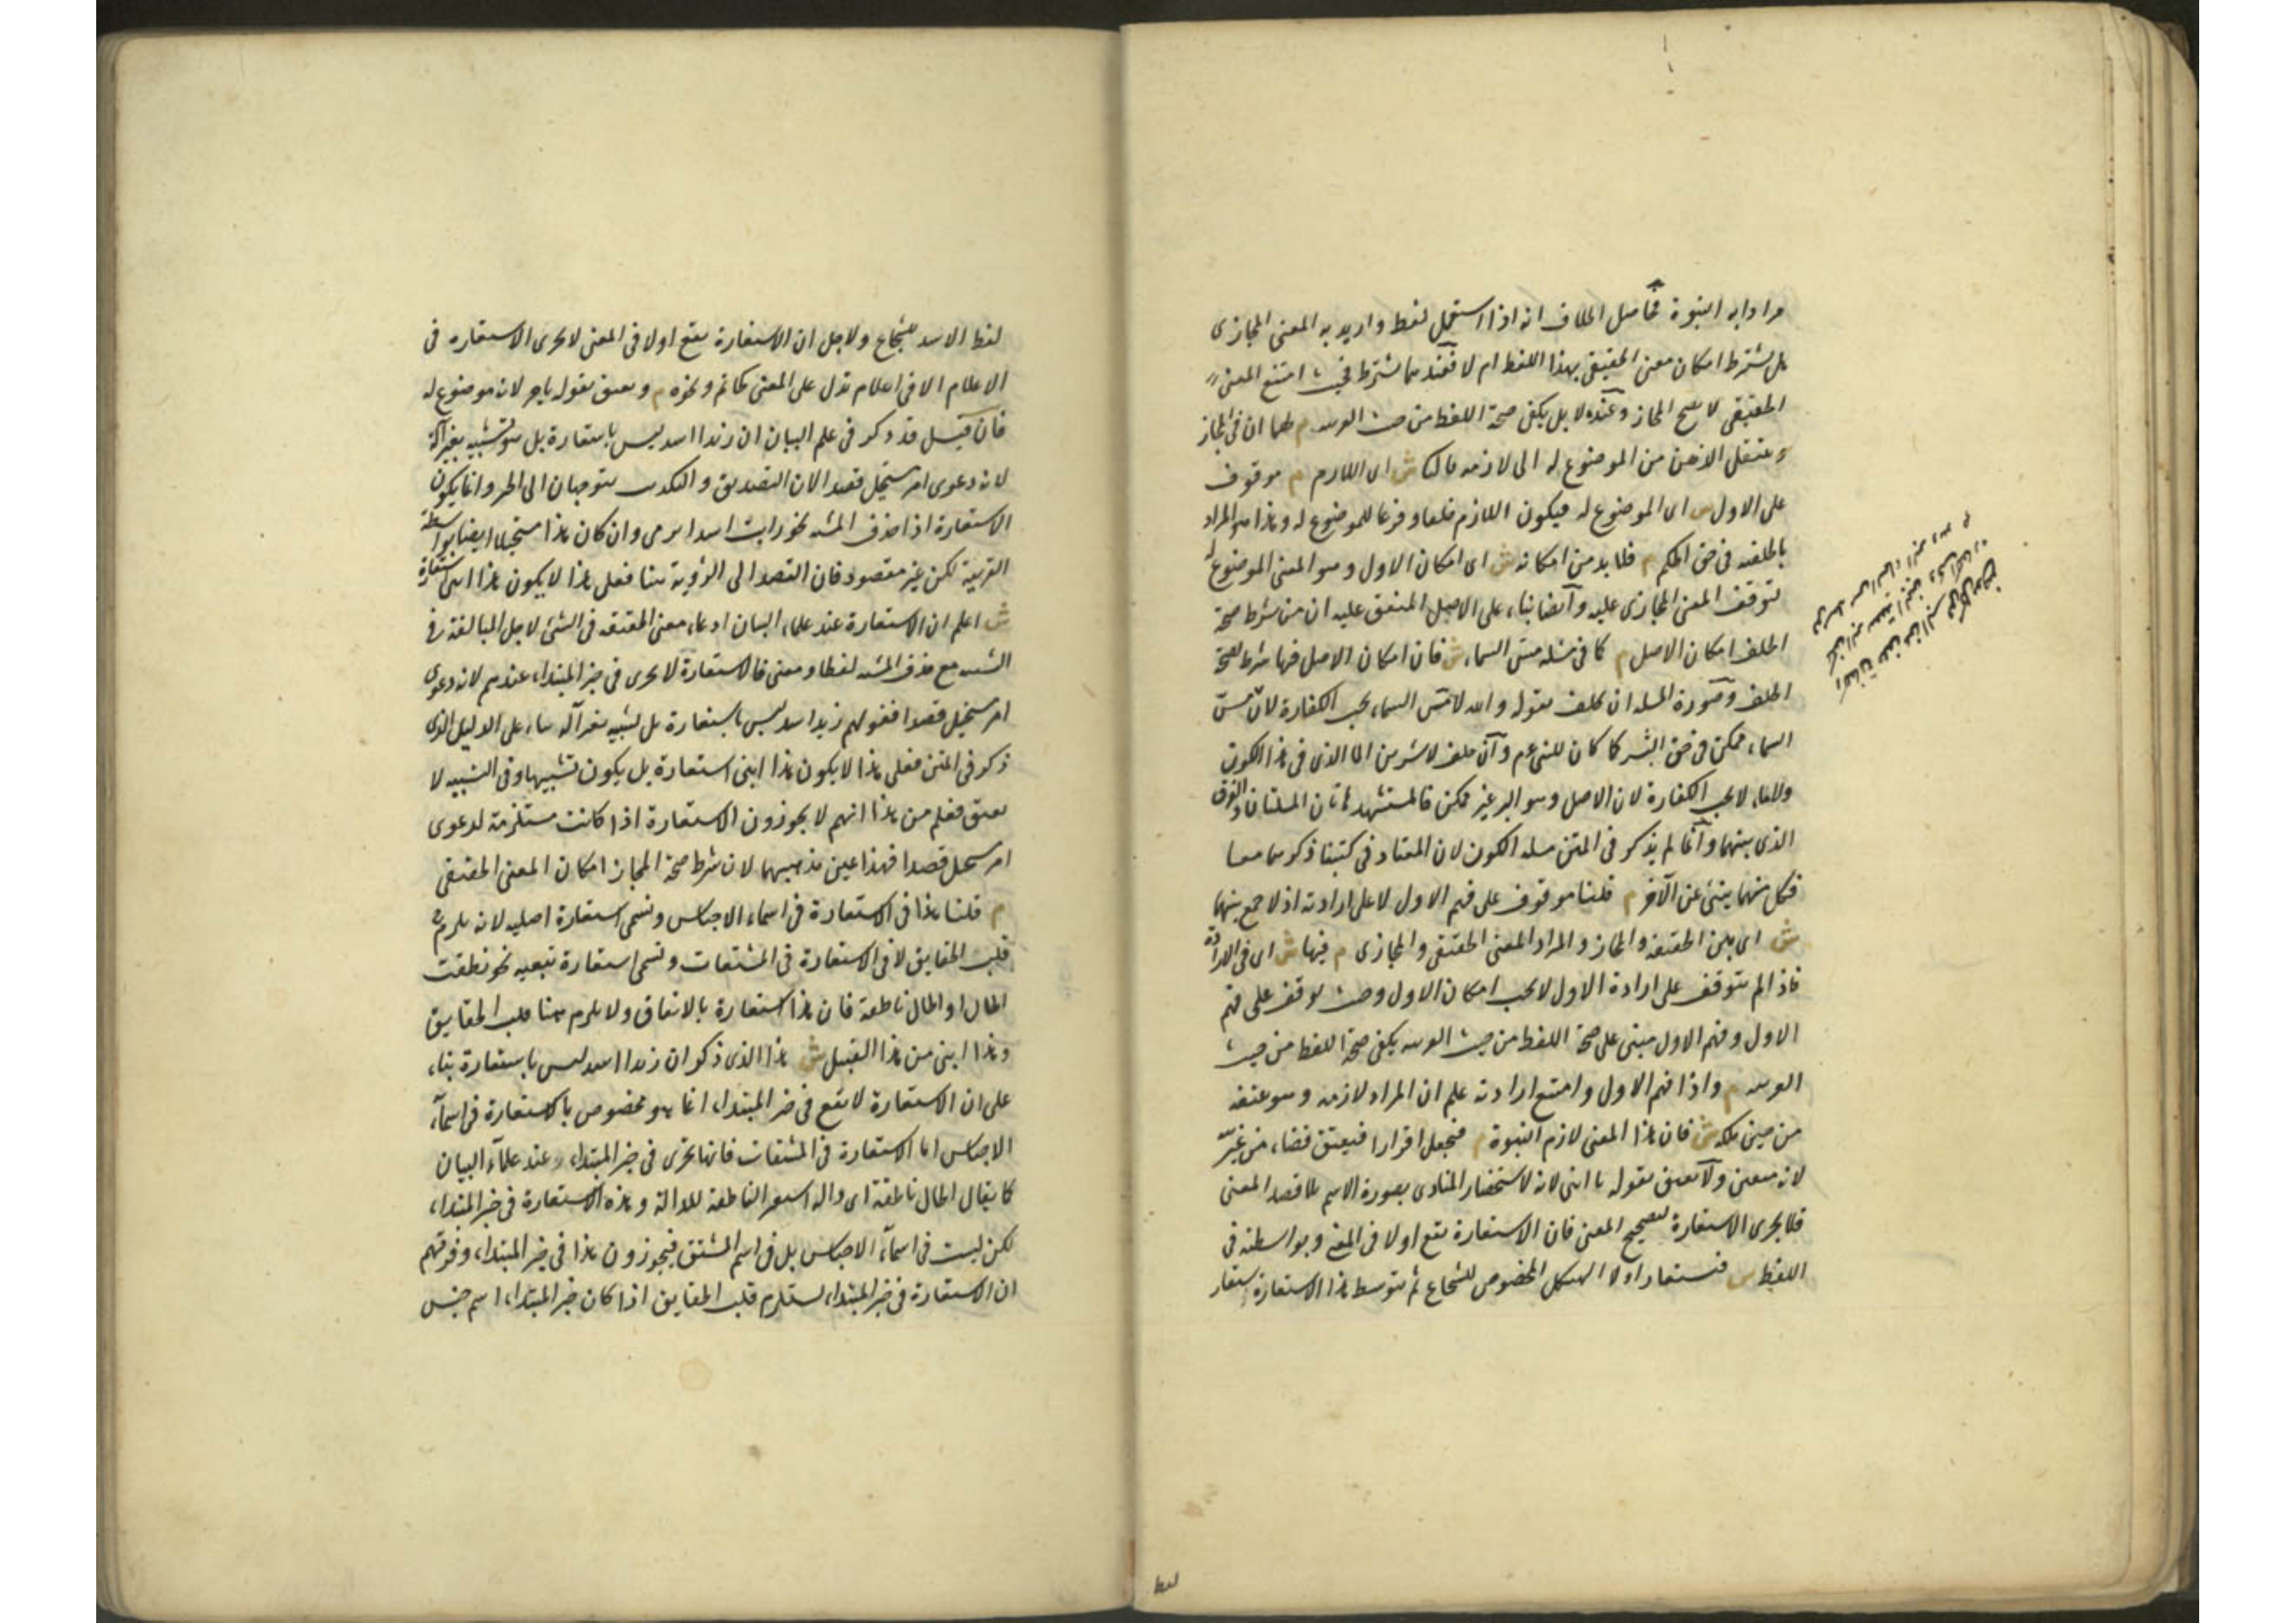 مرادا به البنوة فحاصل الخلاف انه اذا استعمل لفظ واريد به المعنى المجازى
هل يشترط امكان معنى الحقيقى بهذا اللفظ ام لا فعندهما يشترط فحيث امتنع المعنى
الحقيقى لا يصح المجاز وعنده لا بل يكفى صحة اللفظ من حيث العربية م لهما ان فى المجاز
ينتقل الذهن من الموضوع له الى لازمه فالثانى ش اى اللازم م موقوف
على الاول ش اى الموضوع له فيكون اللازم خلفا وفرعا للموضوع له وهذا هو المراد
بالخلفية فى حق الحكم م فلا بد من امكانه ش اى امكان الاول وهو المعنى الموضوع له
لتوقف المعنى المجازى عليه وايضا بناء على الاصل المتفق عليه ان من شرط صحة
الخلف امكان الاصل م كما فى مسئلة مس السماء ش فان امكان الاصل فيها شرط لصحة
الخلف وصورة المسئلة ان يحلف بقوله والله لامس السماء يجب الكفارة لان مس
السماء ممكن فى حق البشر كما كان للنبى عم وان حلف لاشربن الماء الذى فى هذا الكوز
ولا ماء لا يجب الكفارة لان الاصل وهو البر غير ممكن فالمستشهد هاتان المسئلتان والفرق
الذى بينهما وانما لم يذكر فى المتن مسئلة الكوز لان المعتاد فى كتبنا ذكرهما معا
فكل منهما ينبئ عن الآخر م قلنا موقوف على فهم الاول لا على ارادته اذ لا جمع بينهما
ش اى بين الحقيقة والمجاز والمراد المعنى الحقيقى والمجازى م فيها ش اى فى الارادة
فاذا لم يتوقف على ارادة الاول لا يجب امكان الاول وحيث توقف على فهم
الاول وفهم الاول مبنى على صحة اللفظ من حيث العربية يكفى صحة اللفظ من حيث
العربية م واذا فهم الاول وامتنع ارادته علم ان المراد لازمه وهو عتقه
من حين ملكه ش فان هذا المعنى لازم البنوة م فيجعل اقرارا فيعتق قضاء من غير نية
لانه متعين ولا يعتق بقوله يا ابنى لانه لاستحضار المنادى بصورة الاسم بلا قصد المعنى
فلا يجرى الاستعارة لتصحيح المعنى فان الاستعارة تقع اولا فى المعنى وبواسطته فى
اللفظ ش فيستعار اولا الهيكل المخصوص للشجاع ثم بتوسط هذا الاستعارة يستعار
لفظ
لفظ الاسد للشجاع ولاجل ان الاستعارة تقع اولا فى المعنى لا يجرى الاستعارة فى
الاعلام الا فى اعلام تدل على المعنى كحاتم ونحوه م ويعتق بقوله يا حر لانه موضوع له
فان قيل قد ذكر فى علم البيان ان زيدا اسد ليس باستعارة بل هو تشبيه بغير آلة
لانه دعوى امر مستحيل قصدا لان التصديق والتكذيب يتوجهان الى الخبر وانما يكون
الاستعارة اذا حذف المشبه نحو رايت اسدا يرمى وان كان هذا مستحيلا ايضا بواسطة
القرينة لكن غير مقصود فان القصد الى الرؤية هنا فعلى هذا لا يكون هذا ابنى استعارة
ش اعلم ان الاستعارة عند علماء البيان ادعاء معنى الحقيقة فى الشئ لاجل المبالغة فى
التشبيه مع حذف المشبه لفظا ومعنى فالاستعارة لا يجرى فى خبر المبتداء عندهم لانه دعوى
امر مستحيل قصدا فقولهم زيد اسد ليس باستعارة بل تشبيه بغير آلة بناء على الدليل الذى
ذكر فى المتن فعلى هذا لا يكون هذا ابنى استعارة بل يكون تشبيها وفى التشبيه لا
يعتق فعلم من هذا انهم لا يجوزون الاستعارة اذا كانت مستلزمة لدعوى
امر مستحيل قصدا فهذا عين مذهبهما لان شرط صحة المجاز امكان المعنى الحقيقى
م قلنا هذا فى الاستعارة فى اسماء الاجناس وتسمى استعارة اصلية لانه يلزم ح
قلب الحقايق لا فى الاستعارة فى المشتقات وتسمى استعارة تبعية نحو نطقت
الحال او الحال ناطقة فان هذا استعارة بالاتفاق ولا يلزم هنا قلب الحقايق
وهذا ابنى من هذا القبيل ش هذا الذى ذكر ان زيدا اسد ليس باستعارة بناء
على ان الاستعارة لا تقع فى خبر المبتداء انما هو مخصوص بالاستعارة فى اسماء
الاجناس اما الاستعارة فى المشتقات فانها تجرى فى خبر المبتداء عند علماء البيان
كما يقال الحال ناطقة اى دالة استعير الناطقة للدالة وهذه الاستعارة فى خبر المبتداء
لكن ليست فى اسماء الاجناس بل فى اسم المشتق فيجوزون هذا فى خبر المبتداء وفرقهم
ان الاستعارة فى خبر المبتداء يستلزم قلب الحقايق اذا كان خبر المبتداء اسم جنس